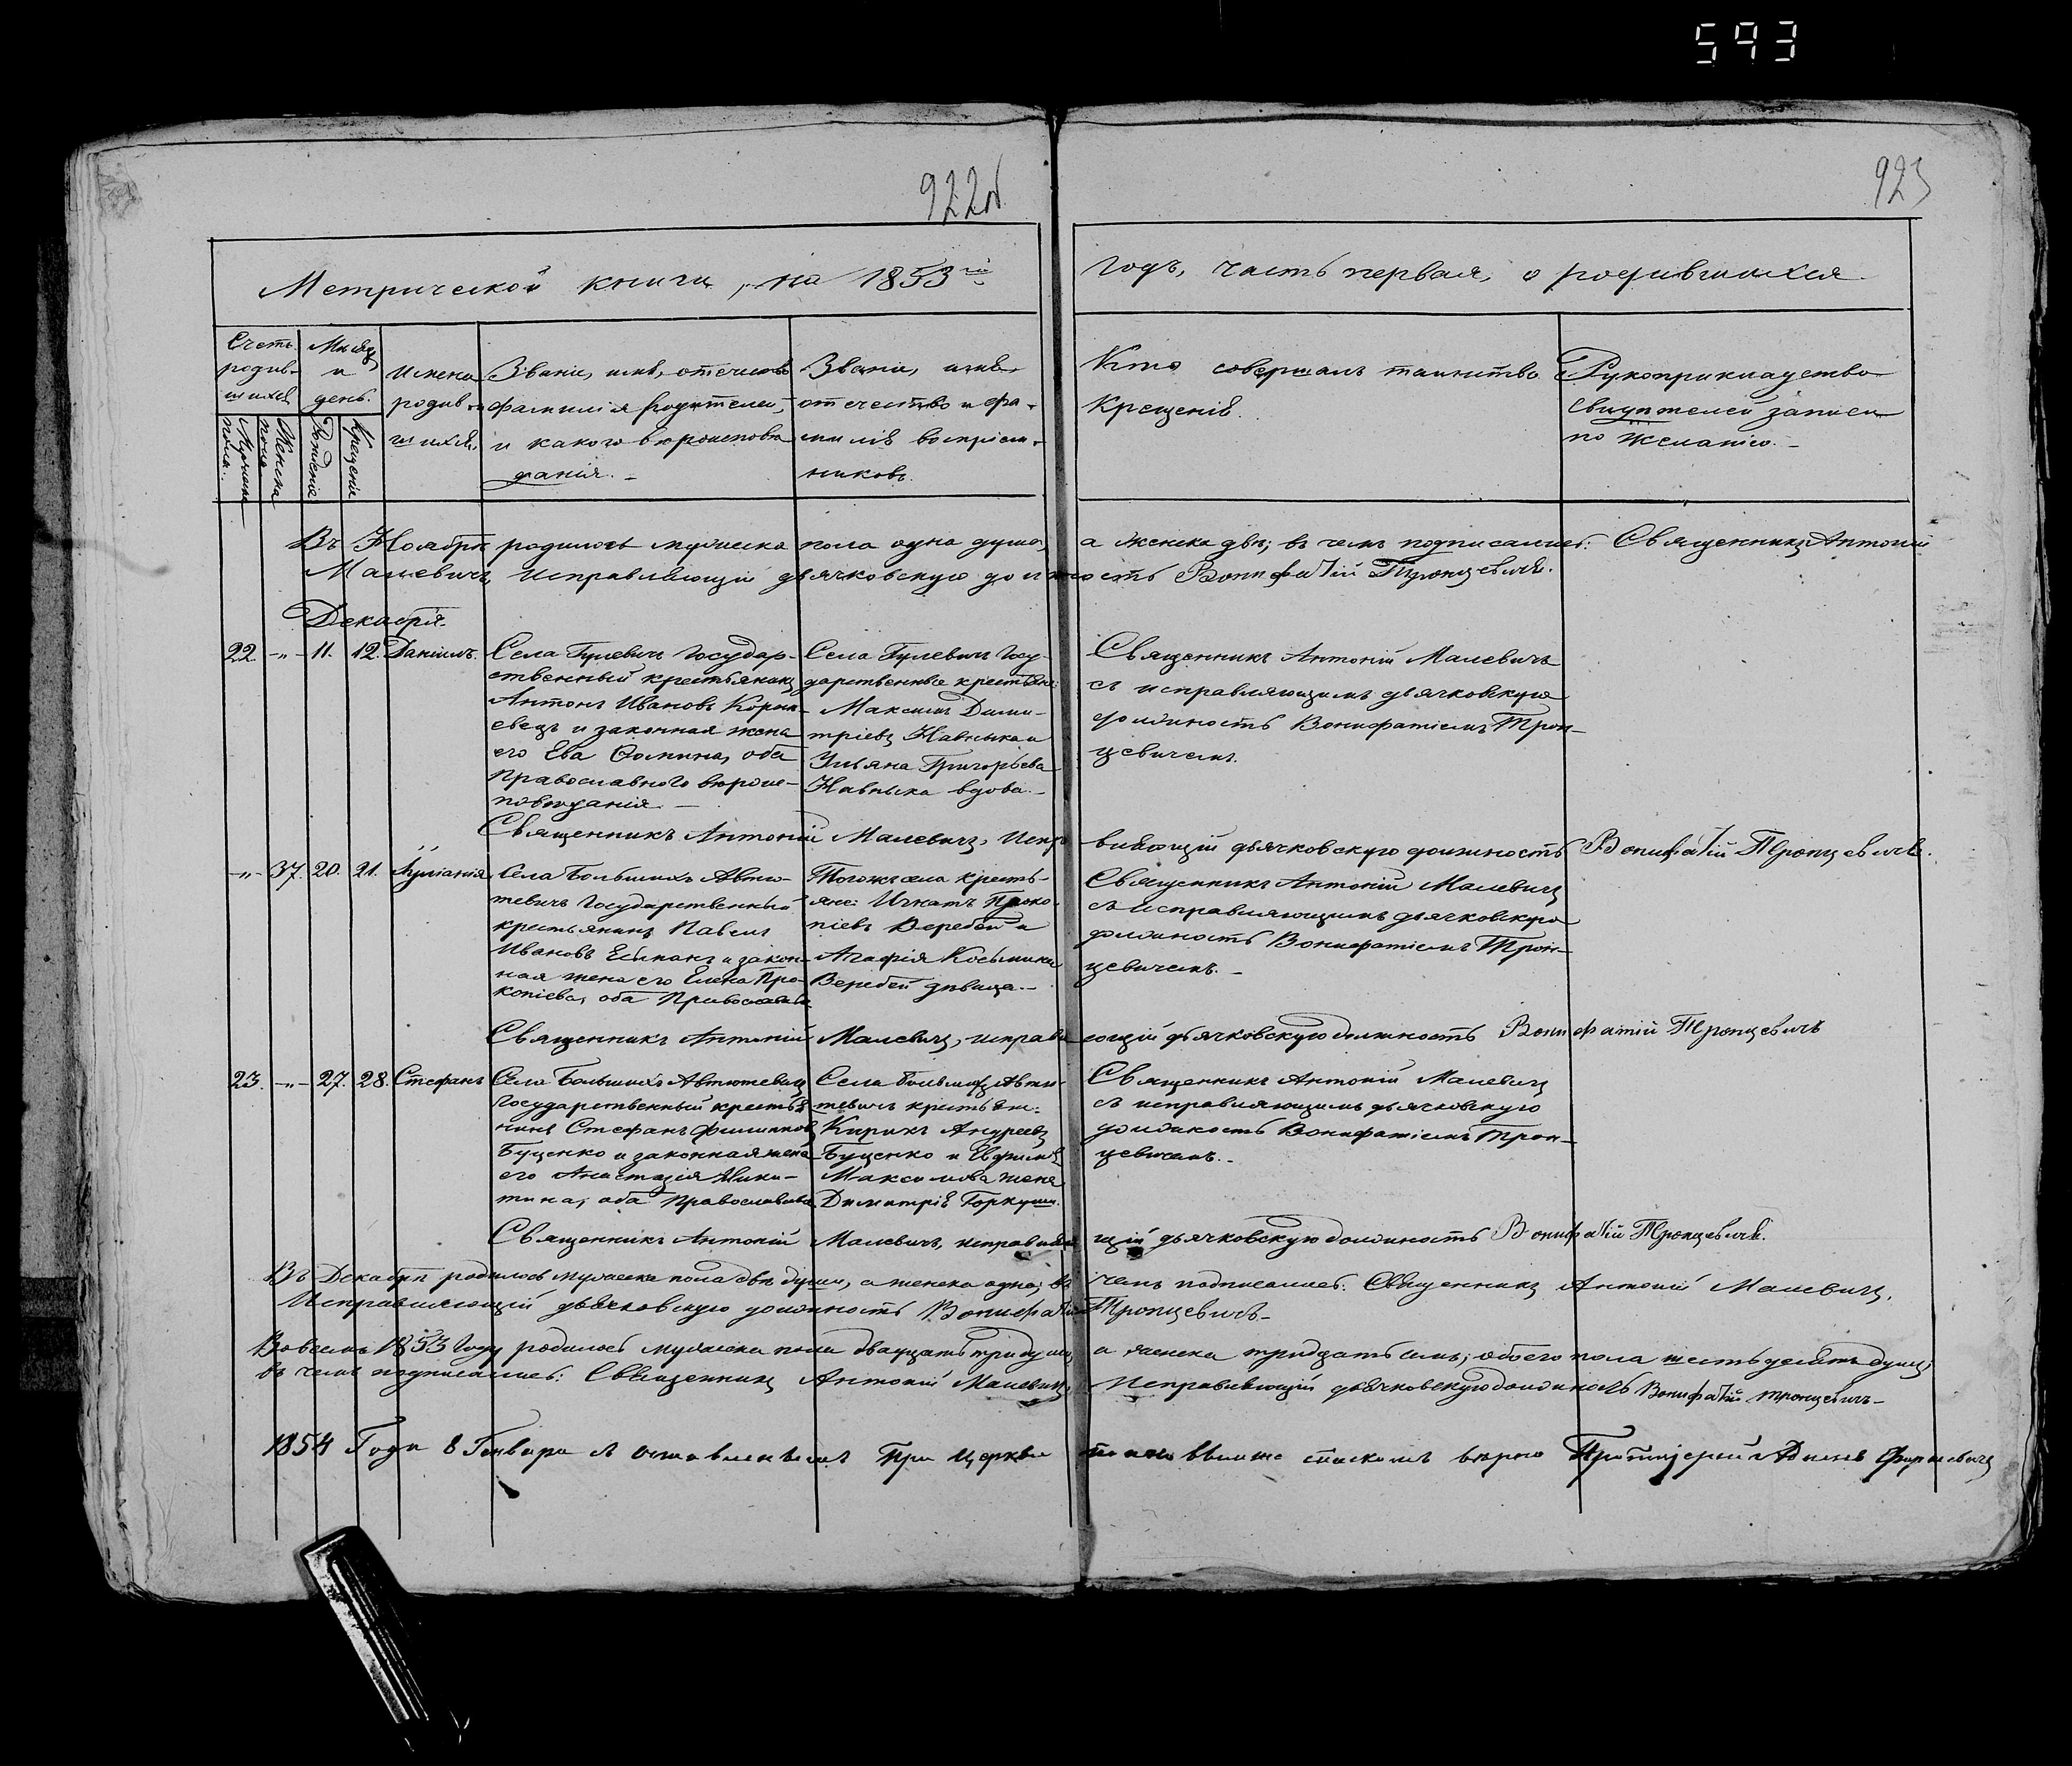 593
922об
923
Метрической книги, на 1853й годъ, часть первая, о родившихся
Счетъ родив-шихся
Мужеска пола.
Женска пола
Мѣсяцъ и день.
Рожденія
Крещенія
Имена родив-шихся.
Званіе, имя, отчество
фамилія родителей,
и какого вѣроисповѣ
данія.
Званіе, имя,
отечество и фа-
милія воспріем-
никовъ.
Кто совершалъ таинство
Крещенія.
Рукоприкладство
свидѣтелей записи
по желанію.
Въ Ноябрѣ родилось мужеска пола одна душа, а женска двѣ; въ чемъ подписались: Священникъ Антоній
Малевичъ, Исправляющій дьячковскую должность Вонифатій Тронцевичъ.
Декабря
22. -"- 11. 12. Даніилъ.
Села Гулевичъ Государ-
ственный крестьянинъ
Антонъ Ивановъ
и законная жена
его Ева Ѳомина, оба
Православнаго вѣроис-
повѣданія.
Села Гулевичъ Госу-
дарственные крестьяне:
Максимъ Дими-
тріевъ
Ульяна Григорьева
вдова.
Священникъ Антоній Малевичъ
съ исправляющимъ дьячковскую
должность Вонифатіемъ Трон-
цевичемъ.
Священникъ Антоній Малевичъ, Исправляющій дьячковскую должность Вонифатій Тронцевичъ.
-"- 37. 20. 21. Іуліанія
Села Большихъ Автю-
тевичъ Государственный
крестьянинъ Павелъ
Ивановъ и закон-
ная жена его Елена Про-
копіева, оба Православные
Тогожъ села кресть-
яне: Игнатъ Проко-
піевъ Веребей и
Агафія Косьмина
Веребей дѣвица.
Священникъ Антоній Малевичъ
съ исправляющимъ дьячковскую
должность Вонифатіемъ Трон-
цевичемъ.
Священникъ Антоній Малевичъ, исправляющій дьячковскую должность Вонифатій Тронцевичъ
23. -"- 27. 28. Стефанъ
Села Большихъ Автютевичъ
Государственный крестья
нинъ Стефанъ Филиповъ
Буценко и законная жена
его Анастасія Ники-
тина, оба Православные
Села Большихъ Автю-
тевичъ крестьяне:
Кирикъ Андреевъ
Буценко и Евфимія
Максимова жена
Димитрія Горкуши.
Священникъ Антоній Малевичъ
съ исправляющимъ дьячковскую
должность Вонифатіемъ Трон-
цевичемъ.
Священникъ Антоній Малевичъ, исправляющій дьячковскую должность Вонифатій Тронцевичъ.
Въ Декабрѣ родилось мужеска пола двѣ души, а женска одна; въ чемъ подписались: Священникъ Антоній Малевичъ,
Исправляющій дьячковскую должность Вонифатій Тронцевичъ.
Во всемъ 1853 году родилось мужеска пола двадцать три души, а женска тридцать семь; обоего пола шестьдесятъ душъ;
въ чемъ подписались: Священникъ Антоній Малевичъ, Исправляющій дьячковскую должность Вонифатій Тронцевичъ
1854 Года 8 Генваря съ оставленнымъ при церкви спискомъ вѣрно Протоіерей